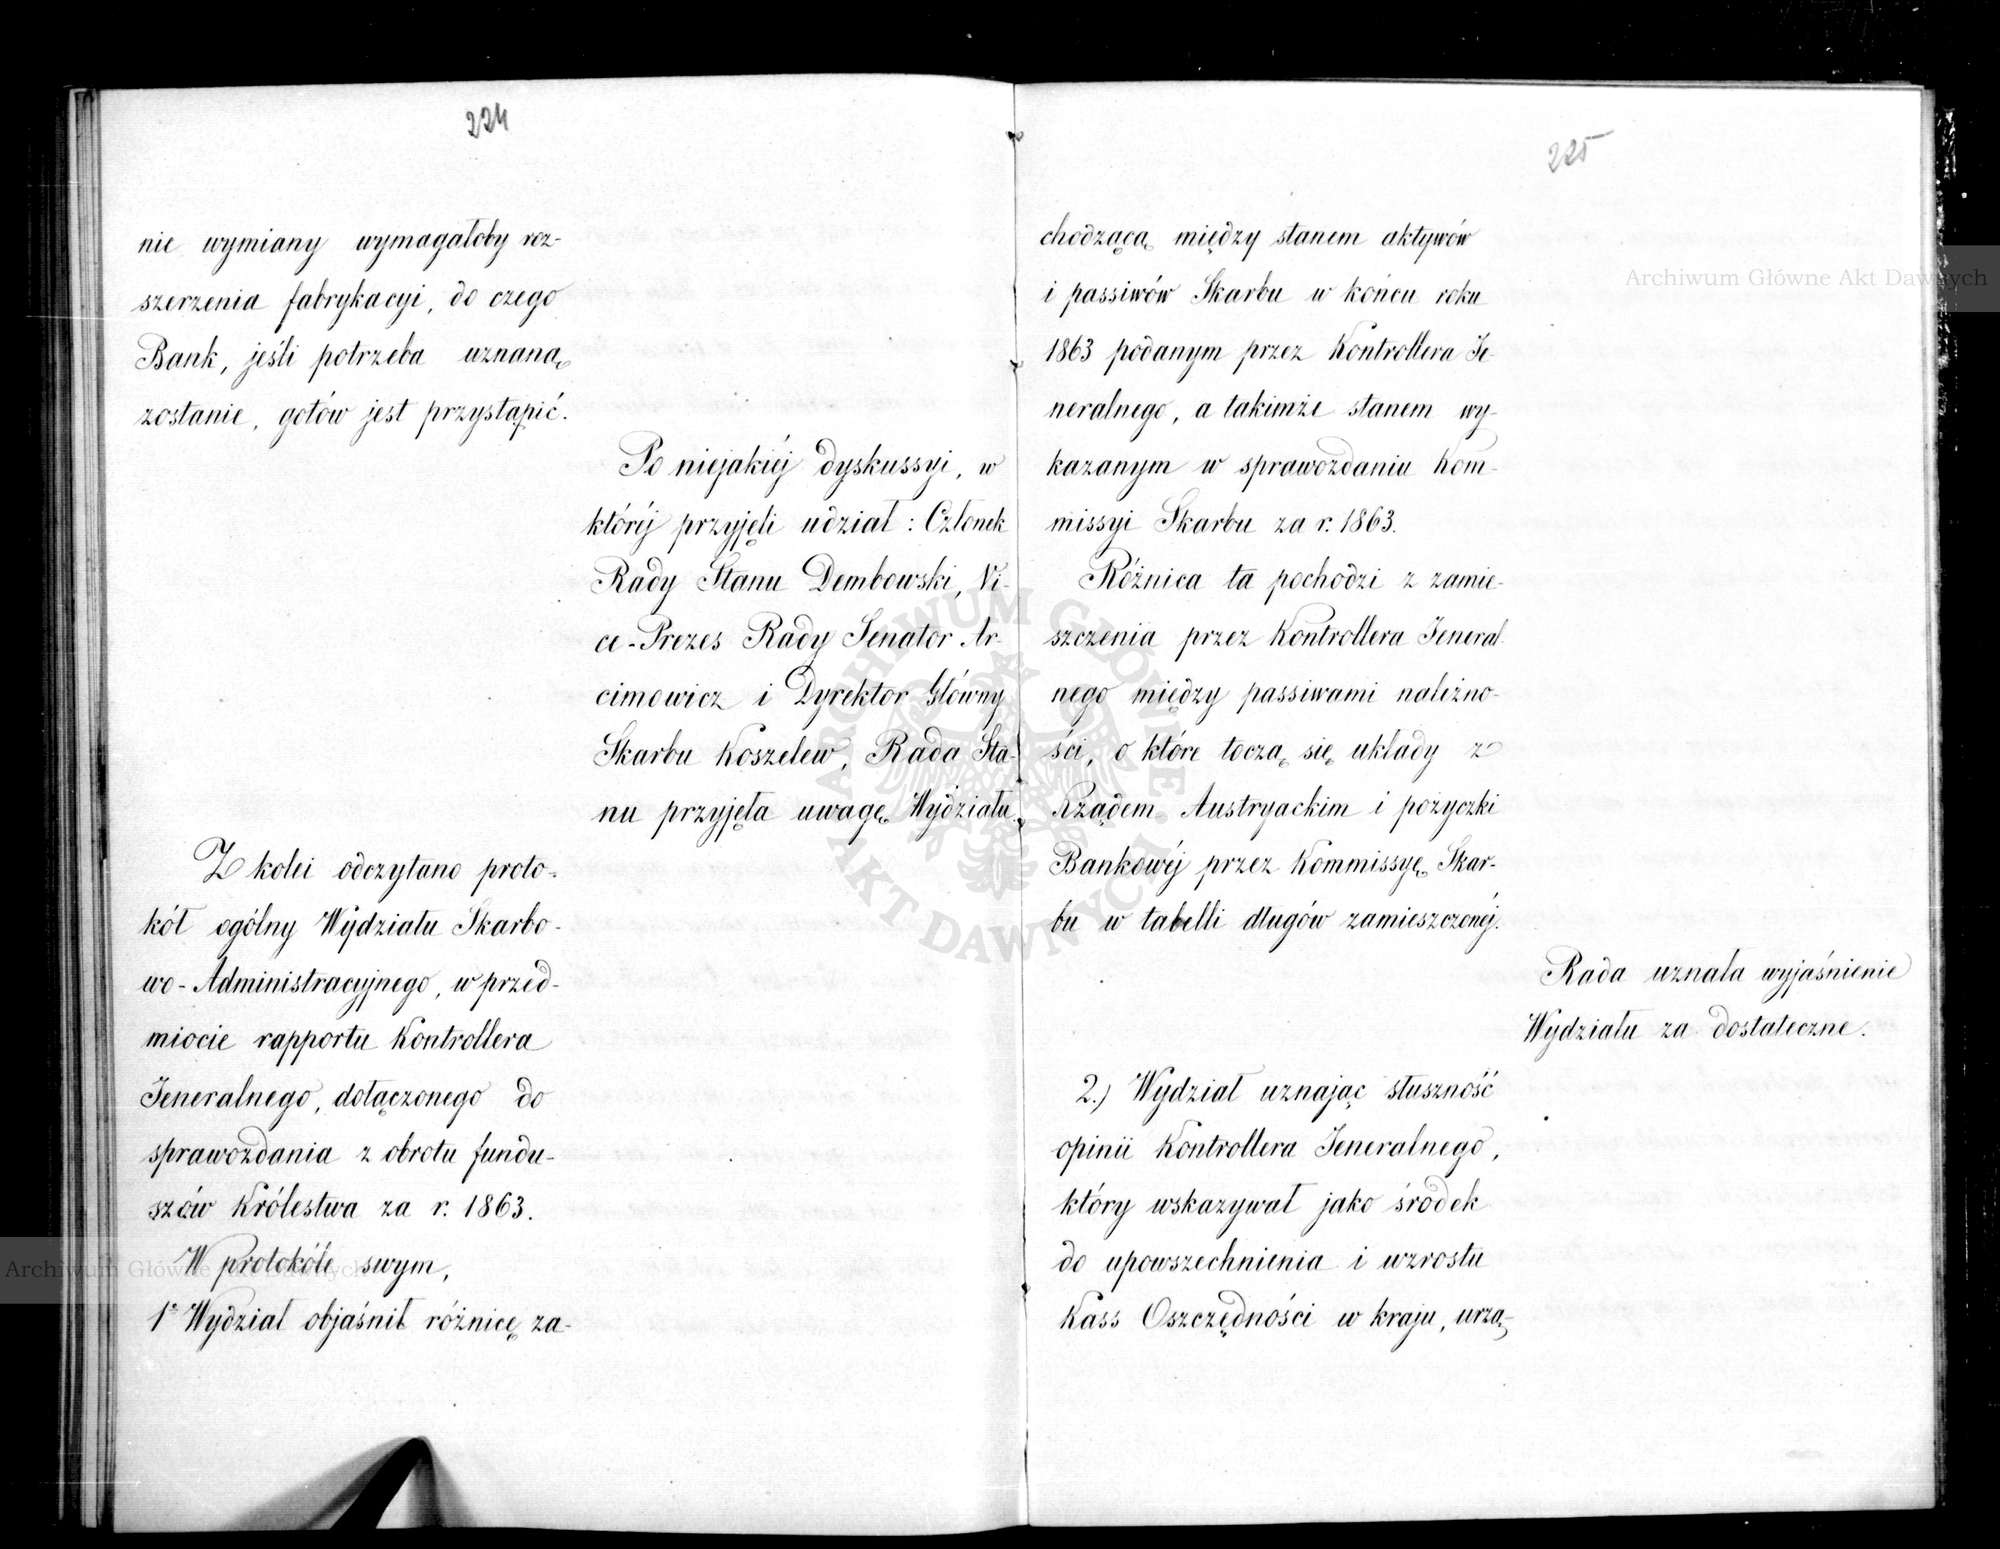 224
nie wymiany wymagałoby roz-
szerzenia fabrykacyi, do czego
Bank, jeśli potrzeba uznaną
zostanie, gotów jest przystąpić.
Po niejakiéj dyskussyi, w
któréj przyjęli udział: Członek
Rady Stanu Dembowski, Vi-
ce-Prezes Rady Senator Ar-
cimowicz i Dyrektor Główny
Skarbu Koszelew, Rada Sta-
nu przyjęła uwagę Wydziału.
Z kolei odczytano proto-
kół ogólny Wydziału Skarbo-
wo-Administracyjnego, w przed-
miocie rapportu Kontrollera
Jeneralnego, dołączonego do
sprawozdania z obrotu fundu-
szów Królestwa za r. 1863.
W protokóle swym,
1º Wydział objaśnił różnicę za-
225
chodzącą między stanem aktywów
i passiwów Skarbu w końcu roku
1863 podanym przez Kontrollera Je-
neralnego, a takimże stanem wy-
kazanym w sprawozdaniu Kom-
missyi Skarbu za r. 1863.
Różnica ta pochodzi z zamie-
szczenia przez Kontrollera Jeneral-
nego między passiwami należno-
ści, o które toczą się układy z
Rządem Austryackim i pożyczki
Bankowéj przez Kommissyę Skar-
bu w tabelli długów zamieszczonéj.
Rada uznała wyjaśnienie
Wydziału za dostateczne.
2.) Wydział uznając słuszność
opinii Kontrollera Jeneralnego,
który wskazywał jako środek
do upowszechnienia i wzrostu
Kass Oszczędności w kraju, urzą-
Archiwum Główne Akt Dawnych
Archiwum Główne Akt Dawnych
ARCHIWUM GŁÓWNE AKT DAWNYCH